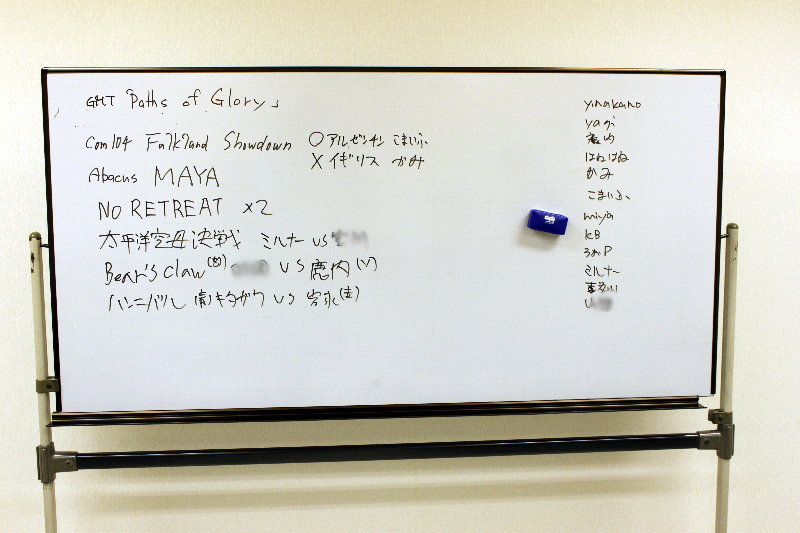 GMT「Paths of Glory」
Com104 Falkland Showdown ○アルゼンチン こまいぬ
×イギリス かみ
Abacus MAYA
NO RETREAT ×2
太平洋空母決戦 ミルナー vs
Bear's Claw vs 鹿内(ソ)
ハンニバル キタガワ vs
yinakano
yagi
はねはね
かみ
こまいぬ
miya
KB
ミルナー